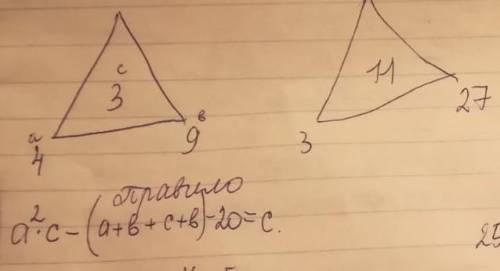 c
3
a
4
в
9
11
3
27
правило
a²·c-(a+в+c+в)-20=c.
25